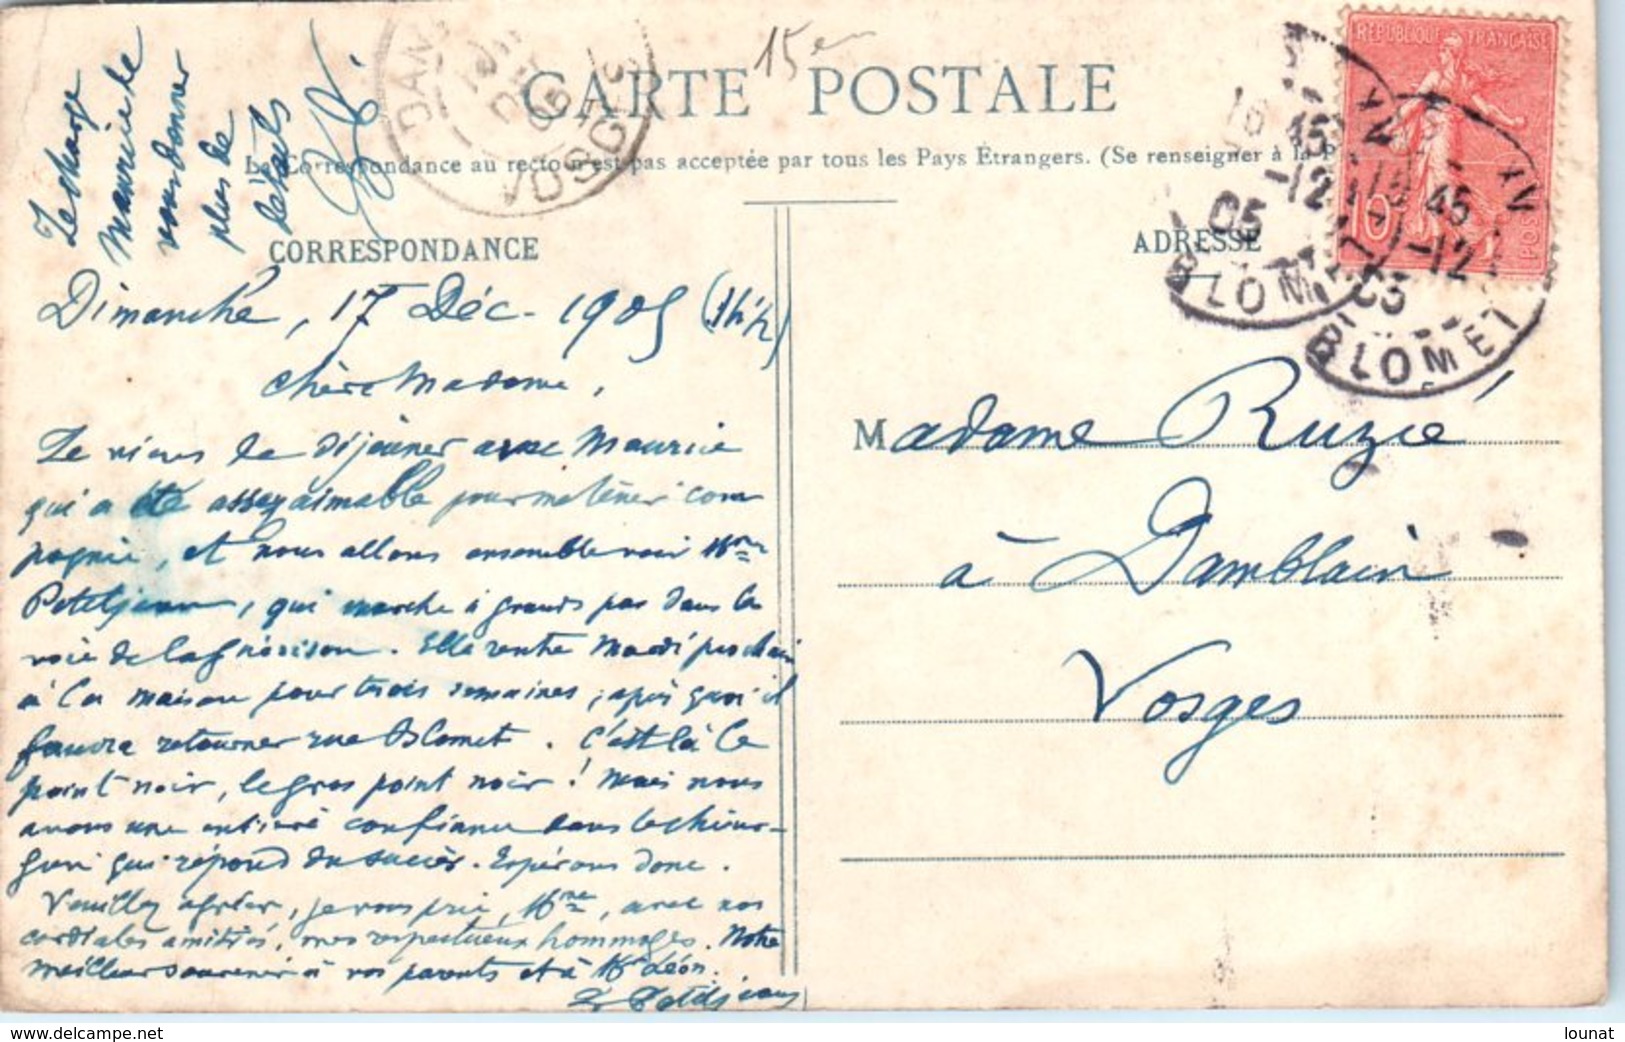 15e
CARTE POSTALE
La Correspondance au recto n'est pas acceptée par tous les Pays Étrangers. (Se renseigner à la P
CORRESPONDANCE
ADRESSE
RÉPUBLIQUE FRANÇAISE
10
POSTES
PARIS XV
18 45
-12
05
R. BLOMET
PARIS XV
18 45
-12
05
R. BLOMET
DAM
05
VOSGES
Je charge
Maurice de
vous donner
plus de
détails
Dimanche, 17 Déc - 1905 (1h½)
Chère Madame,
Je viens de déjeuner avec Maurice
qui a été assez aimable pour me tenir com
pagnie, et nous allons ensemble voir Mme
Petitjean, qui marche à grands pas dans la
voie de la guérison. Elle rentre Mardi prochain
à la maison pour trois semaines, après quoi il
faudra retourner rue Blomet. C'est là le
point noir, le gros point noir ! Mais nous
avons une entière confiance dans le chirur-
gien qui répond du succès. Espérons donc.
Veuillez agréer, je vous prie, Mme, avec nos
cordiales amitiés, mes respectueux hommages. Notre
meilleur souvenir à vos parents et à Mr Léon.
Petitjean
Madame Ruzié
à Damblain
Vosges
www.delcampe.net
lounat